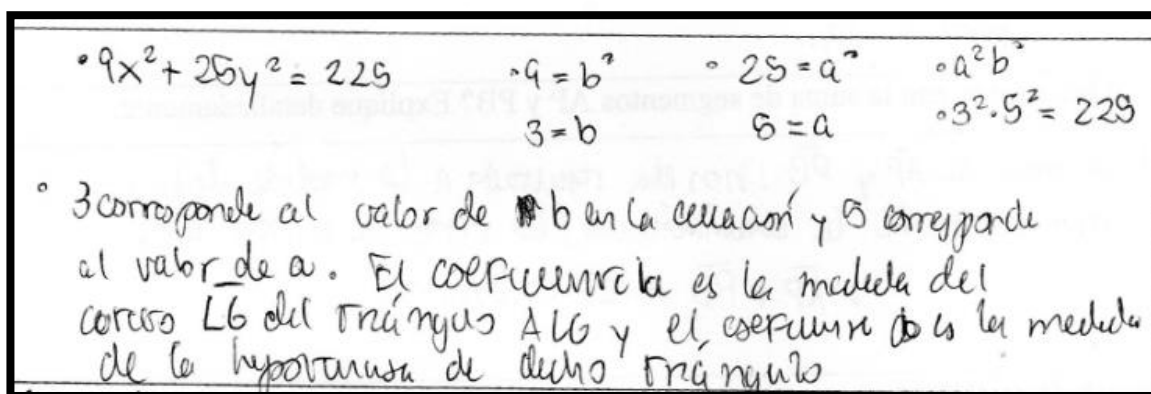 • 9x² + 25y² = 225 • 9 = b² • 25 = a² • a²b²
3 = b 5 = a • 3² · 5² = 225
• 3 corresponde al valor de b en la ecuación y 5 corresponde
al valor de a. El coeficiente b es la medida del
cateto LG del triángulo ALG y el coeficiente a es la medida
de la hypotenusa de dicho triángulo